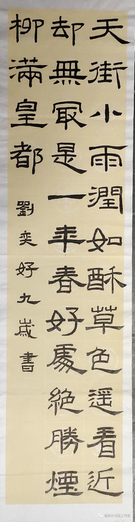 天街小雨潤如酥草色遥看近
却無冣是一年春好處絶勝煙
柳滿皇都
劉奕好九歲書